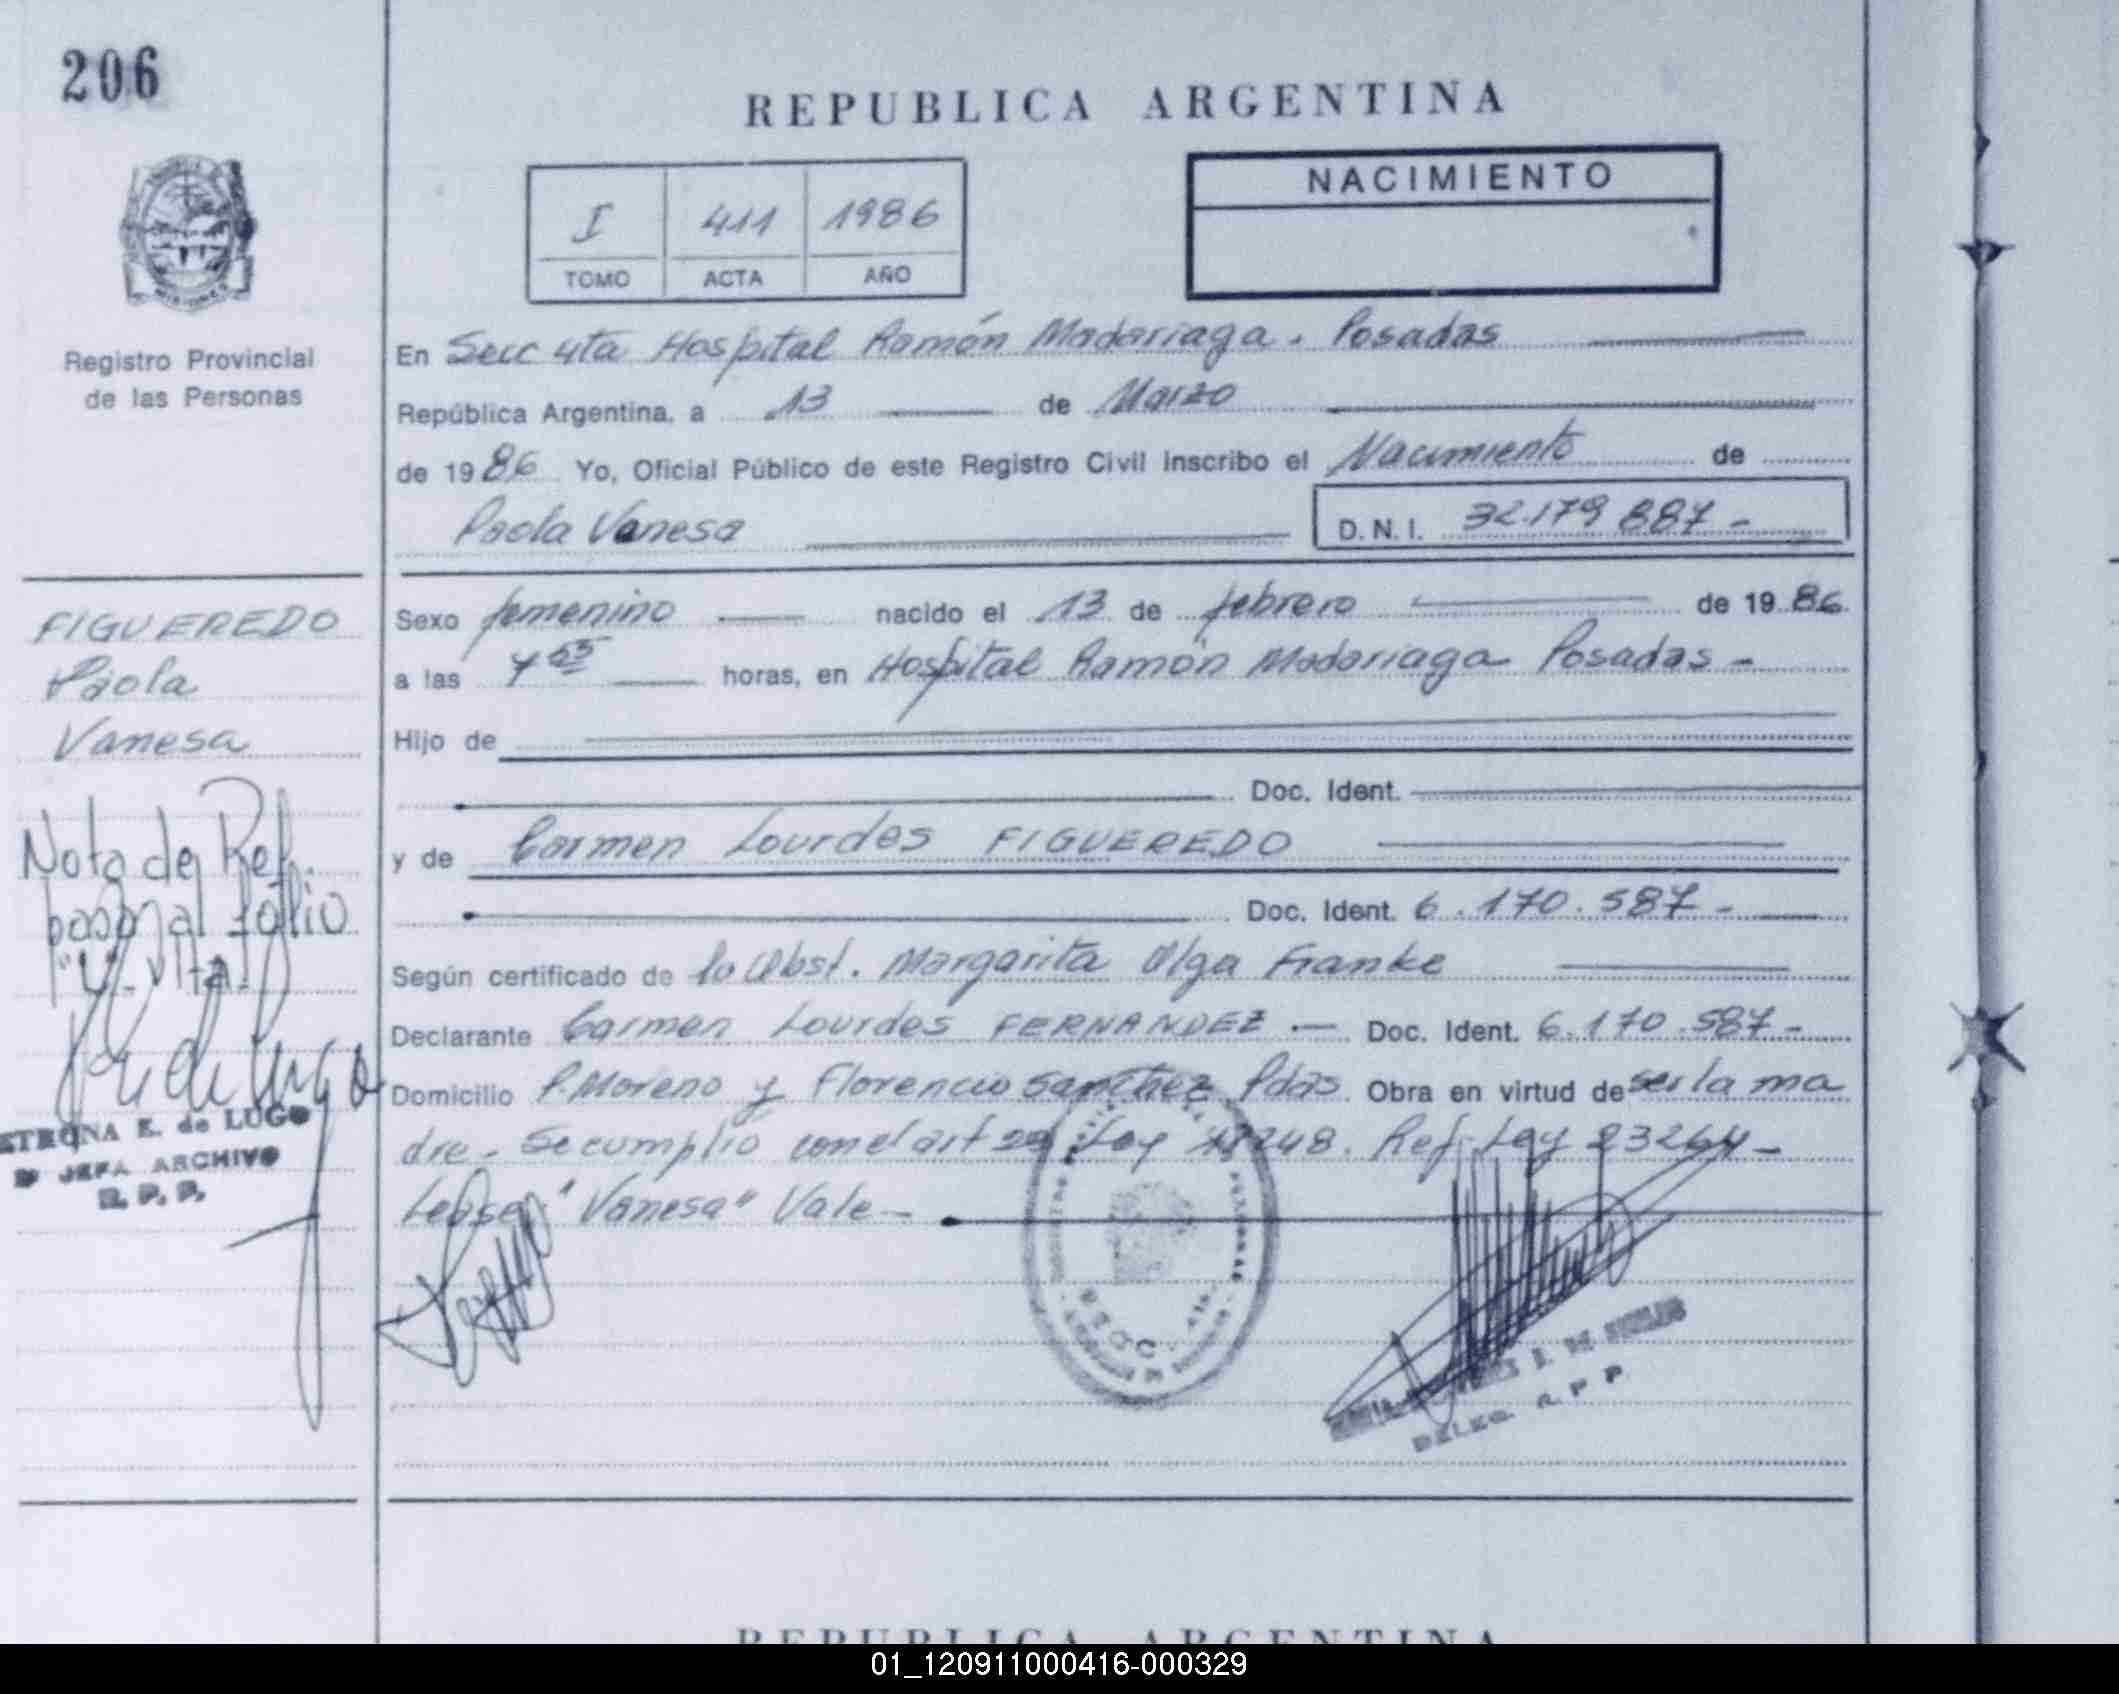 206
REPUBLICA ARGENTINA
I 411 1986
TOMO ACTA AÑO
NACIMIENTO
Registro Provincial
de las Personas
En Secc 4ta Hospital Ramón Madariaga. Posadas
República Argentina, a 13 de Marzo
de 1986 Yo, Oficial Público de este Registro Civil inscribo el Nacimiento de
Paola Vanesa D.N.I. 32.179.887-
FIGUEREDO
Paola
Vanesa
Sexo femenino nacido el 13 de febrero de 1986
a las 7 55 horas, en Hospital Ramón Madariaga Posadas-
Hijo de
Doc. Ident.
y de Carmen Lourdes FIGUEREDO
Doc. Ident. 6.170.587-
Según certificado de la Obst. Margarita Olga Franke
Declarante Carmen Lourdes FERNANDEZ.- Doc. Ident. 6.170.587-
Domicilio P. Moreno y Florencio Sanchez Pdas. Obra en virtud de ser la ma
dre. Se cumplió con el art Ley 18248. Ref. Ley 23264-
"Vanesa" Vale-
Nota de Ref.
pasó al folio
ETRONA E. de LUGO
JEFA ARCHIVO
R. P. P.
DELEG. R. P. P.
REPUBLICA ARGENTINA
01_120911000416-000329